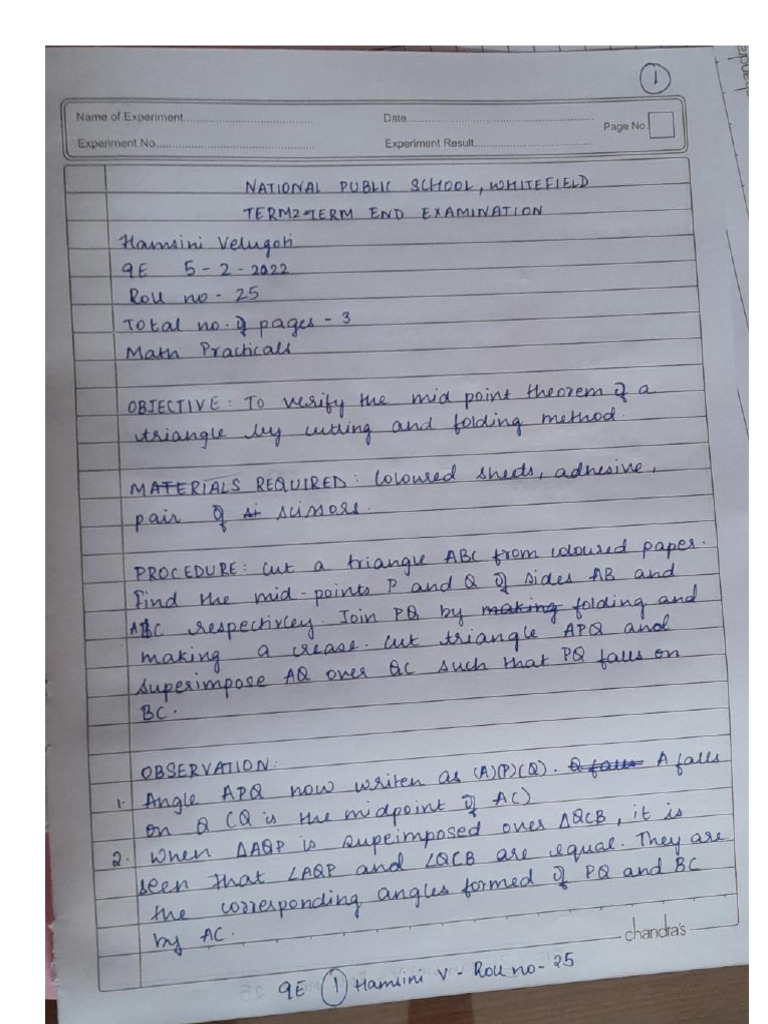 1
Name of Experiment
Date
Page No.
Experiment No.
Experiment Result
NATIONAL PUBLIC SCHOOL, WHITEFIELD
TERM2-TERM END EXAMINATION
Hamsini Velugoti
9E 5-2-2022
Roll no - 25
Total no. of pages - 3
Math Practicals
OBJECTIVE: To verify the mid point theorem of a
triangle by cutting and folding method.
MATERIALS REQUIRED: Coloured sheets, adhesive,
pair of si scissors.
PROCEDURE: Cut a triangle ABC from coloured paper.
Find the mid-points P and Q of sides AB and
AC respectivley. Join PQ by making folding and
making a crease. Cut triangle APQ and
superimpose AQ over QC such that PQ falls on
BC.
OBSERVATION:
1. Angle APQ now writen as (A)(P)(Q). Q falls A falls
on Q (Q is the midpoint of AC)
2. When ΔAQP is supeimposed over ΔQCB, it is
seen that ∠AQP and ∠QCB are equal. They are
the corresponding angles formed of PQ and BC
by AC.
chandra's
9E 1 Hamsini V - Roll no - 25